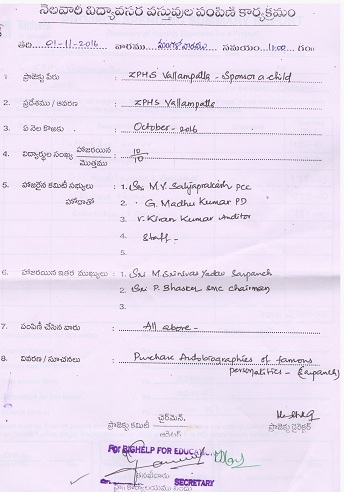 నెలవారి విద్యావసర వస్తువుల పంపిణి కార్యక్రమం
తేది....01-11-2016 వారము....మంగళవారము సమయం....11:00 గం॥
1. ప్రాజెక్టు పేరు : ZPHS Vallampatla - Sponsor a child
2. ప్రదేశము / ఆవరణ : ZPHS Vallampatla
3. ఏ నెల కొఱకు : October - 2016
4. విద్యార్థుల సంఖ్య హాజరయిన / మొత్తము : 10/10
5. హాజరైన కమిటీ సభ్యులు : 1. Sri M.V. Satyaprakash PCC
హోదాతో 2. G. Madhu Kumar PD
3. V. Kiran Kumar Auditor
4. Staff -
5.
6. హాజరయిన ఇతర ముఖ్యులు : 1. Sri M. Srinivas Yadav Sarpanch
2. Sri P. Bhaskar SMC Chairman
3.
7. పంపిణీ చేసిన వారు : All above -
8. వివరణ / సూచనలు : Purchase Autobiographies of famous
personalities - (Sarpanch)
ప్రాజెక్టు కమిటీ చైర్మెన్,
ఆడిటర్
ప్రాజెక్టు డైరెక్టర్
For BIGHELP FOR EDUCATION
SECRETARY